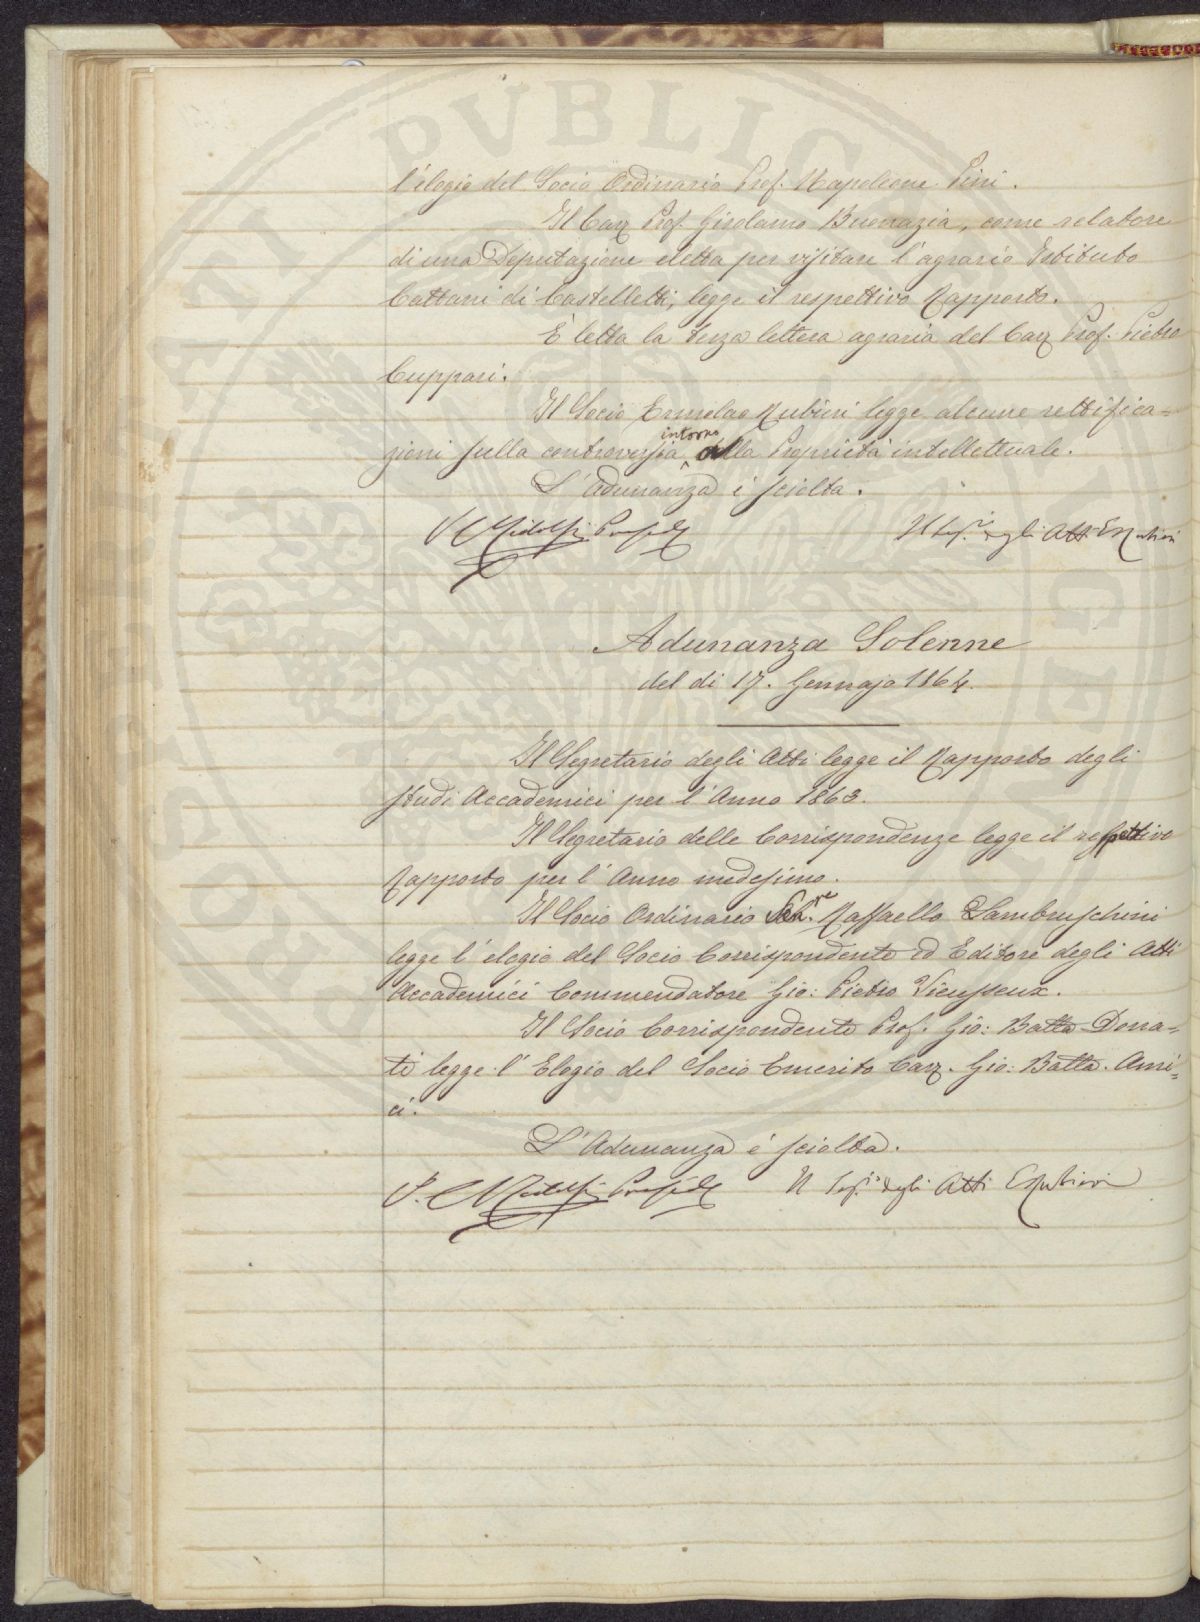 l'elogio del Socio Ordinario Prof. Napoleone Pini.
Il Cav. Prof. Girolamo Buonazia, come relatore
di una Deputazione eletta per visitare l'agrario Istituto
Cattani di Castelletti, legge il respettivo Rapporto.
È letta la terza lettera agraria del Cav. Prof. Pietro
Cuppari.
Il Socio Ermolao Rubieri legge alcune rettifica=
zioni sulla controversia intorno alla Proprietà intellettuale.
L'Adunanza è sciolta.
Ridolfi Presid
Il Seg.º degli Atti ERubieri
Adunanza Solenne
del dì 17. Gennajo 1864.
Il Segretario degli Atti legge il Rapporto degli
studi Accademici per l'Anno 1863.
Il Segretario delle Corrispondenze legge il respettivo
Rapporto per l'Anno medesimo.
Il Socio Ordinario Raffaello Lambruschini
legge l'elogio del Socio Corrispondente ed Editore degli Atti
Accademici Commendatore Gio: Pietro Vieusseux.
Il Socio Corrispondente Prof. Gio: Batta Dona=
ti legge l'Elogio del Socio Emerito Cav. Gio: Batta. Ami=
ci.
L'Adunanza è sciolta.
Ridolfi Presid
Il Seg.º degli Atti ERubieri
PVBLICAE